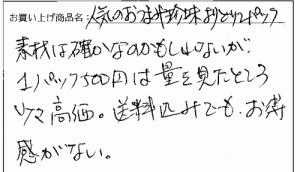 お買い上げ商品名：人気のおつまみ珍味よりどり2パック
素材は確かなのかもしれないが、
1パック500円は量を見たところ
ツマ高価。送料込みでも、お得
感がない。